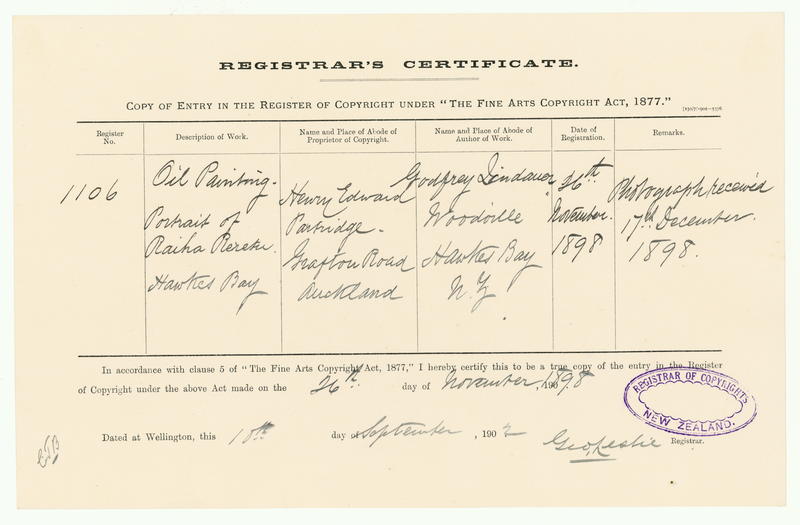 REGISTRAR'S CERTIFICATE.
COPY OF ENTRY IN THE REGISTER OF COPYRIGHT UNDER "THE FINE ARTS COPYRIGHT ACT, 1877."
Register No.
Description of Work.
Name and Place of Abode of Proprietor of Copyright.
Name and Place of Abode of Author of Work.
Date of Registration.
Remarks.
1106
Oil Painting.
Portrait of
Raiha Rereku.
Hawkes Bay
Henry Edward
Partridge.
Grafton Road
Auckland
Godfrey Lindauer
Woodville
Hawkes Bay
N.Z
26th
November.
1898
Photograph received
17th December.
1898.
In accordance with clause 5 of "The Fine Arts Copyright Act, 1877," I hereby certify this to be a true copy of the entry in the Register
of Copyright under the above Act made on the 26th day of November, 1898
Dated at Wellington, this 10th day of September, 1902
Geo, Leslie Registrar.
REGISTRAR OF COPYRIGHTS
NEW ZEALAND.